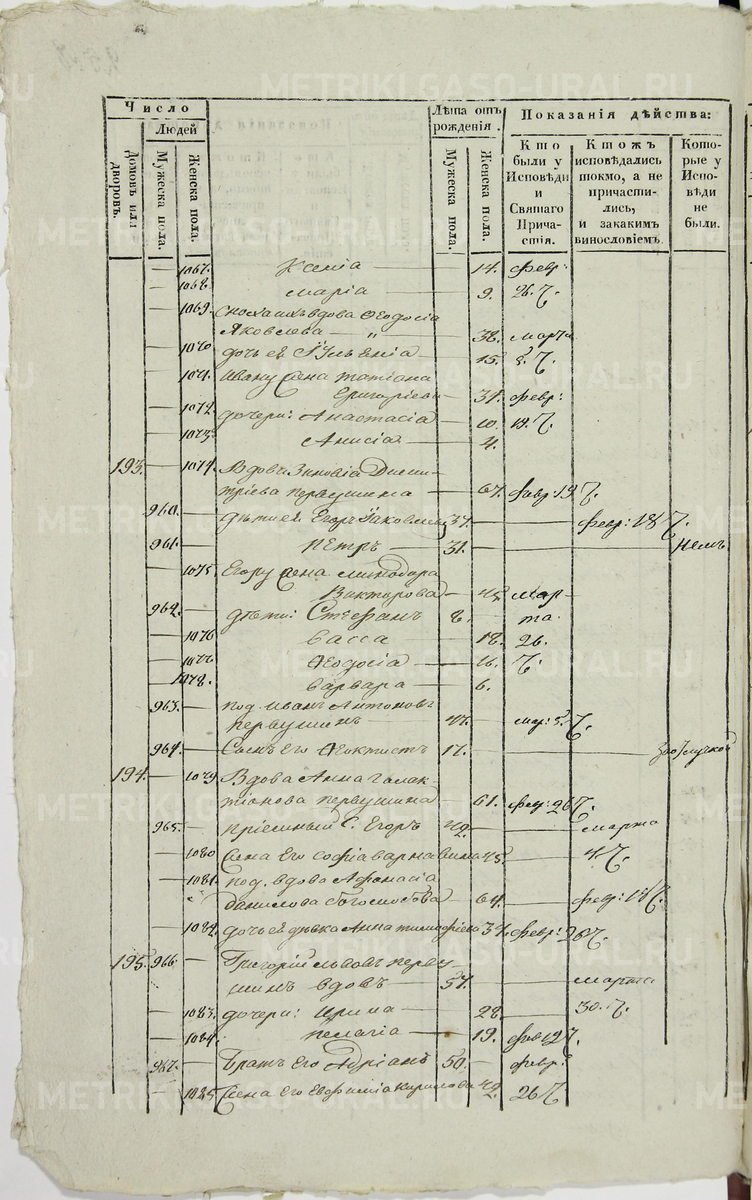 Число
Людей
Домовъ или дворовъ.
Мужеска пола.
Женска пола.
Лѣта отъ рожденія.
Мужеска пола.
Женска пола.
Показанія дѣйства:
Кто были у Исповѣди и Святаго Причастія.
Ктожъ исповѣдались токмо, а не причастились, и закакимъ винословіемъ.
Которые у Исповѣди не были.
— 1067. Ксенія — 14. февр:
— 1068. Марія — 9. 26. Ч.
— 1069. Сноха ихъ вдова Ѳеодосія
Яковлева — „ — 38. марта
— 1070. дочь ея Іуліанія — 15. 5. Ч.
— 1071. Ивану жена Татіана
Григорьева — 31. февр:
— 1072. дочери: Анастасія — 10. 19. Ч.
— 1073. Анисія — 4.
193. — 1074. Вдова Зиновія Дими-
тріева Первушина — 67. февр: 19 Ч.
960. — дѣти ея Егоръ Яковлевъ 37. — февр: 18 Ч.
961. — Петръ — 31. —
— 1075. Егору жена Минодора
Викторова — 45. мар-
962. — дѣти: Стефанъ 8. — та.
— 1076 Васса — 18. 26.
— 1077 Ѳеодосія — 16. Ч.
— 1078. Варвара — 6.
963. — под. Иванъ Антоновъ
Первушинъ 47. — мар: 5. Ч.
964. — Сынъ его Ѳеоктистъ 17. —
194. — 1079 Вдова Анна Галак-
тіонова Первушина — 61. февр: 26 Ч.
965. — пріемный С. Егоръ 42. — марта
— 1080 жена его Софіа Варнавина 45. — 4 Ч.
— 1081. под. вдова Афанасія
Данилова — 64. — февр: 18 Ч.
— 1082. дочь ея дѣвка Анна Тимофѣева 37. февр: 26 Ч.
195. 966 — Григорій Львовъ Перву
шинъ вдовъ — 57. — марта
— 1083. дочери: Ирина — 28. — 30. Ч.
— 1084. Пелагіа — 19.
967. — Братъ его Адріанъ 50. — февр:
— 1085. жена его Евфимія Карилова 49. 26 Ч
METRIKI.GASO-URAL.RU